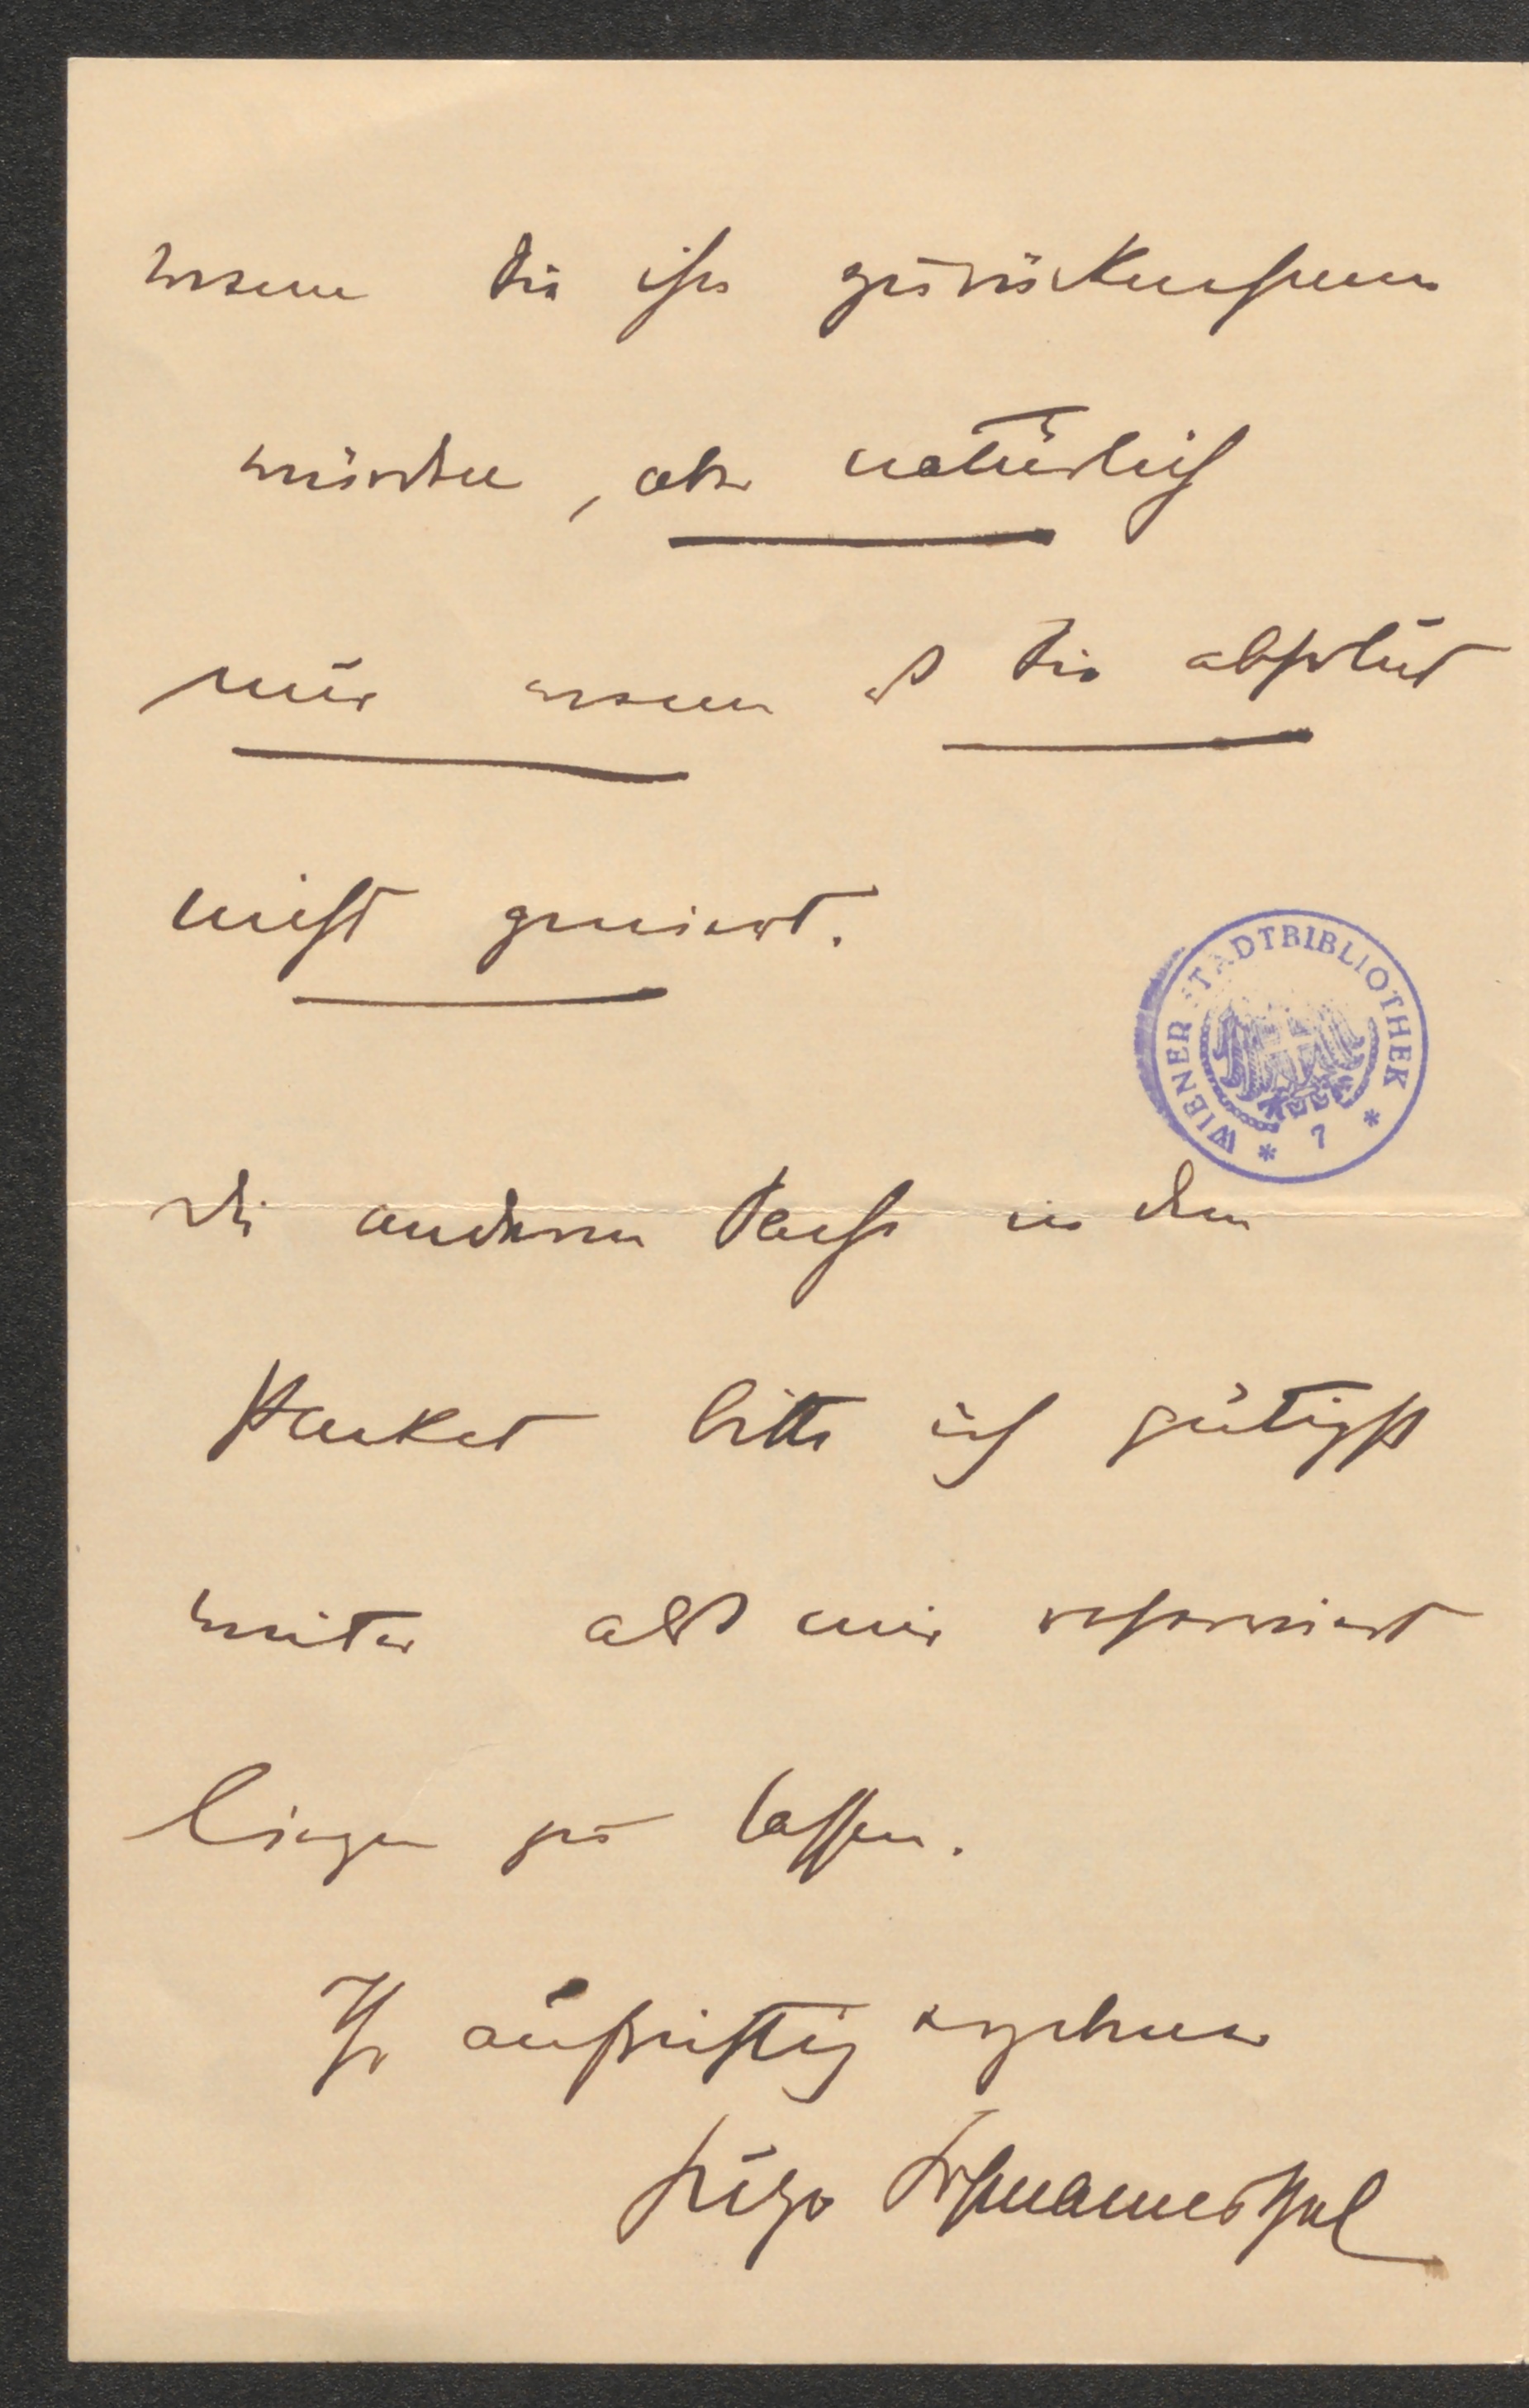 wenn Sie ihn zurücknehmen
würden, aber natürlich
nur wenn es Sie absolut
nicht geniert.
WIENER STADTBIBLIOTHEK * 7 *
Die anderen Sachen in dem
Packet bitte ich gütigst
weiter als mir reserviert
liegen zu lassen.
Ihr aufrichtig ergebener
Hugo Hofmannsthal